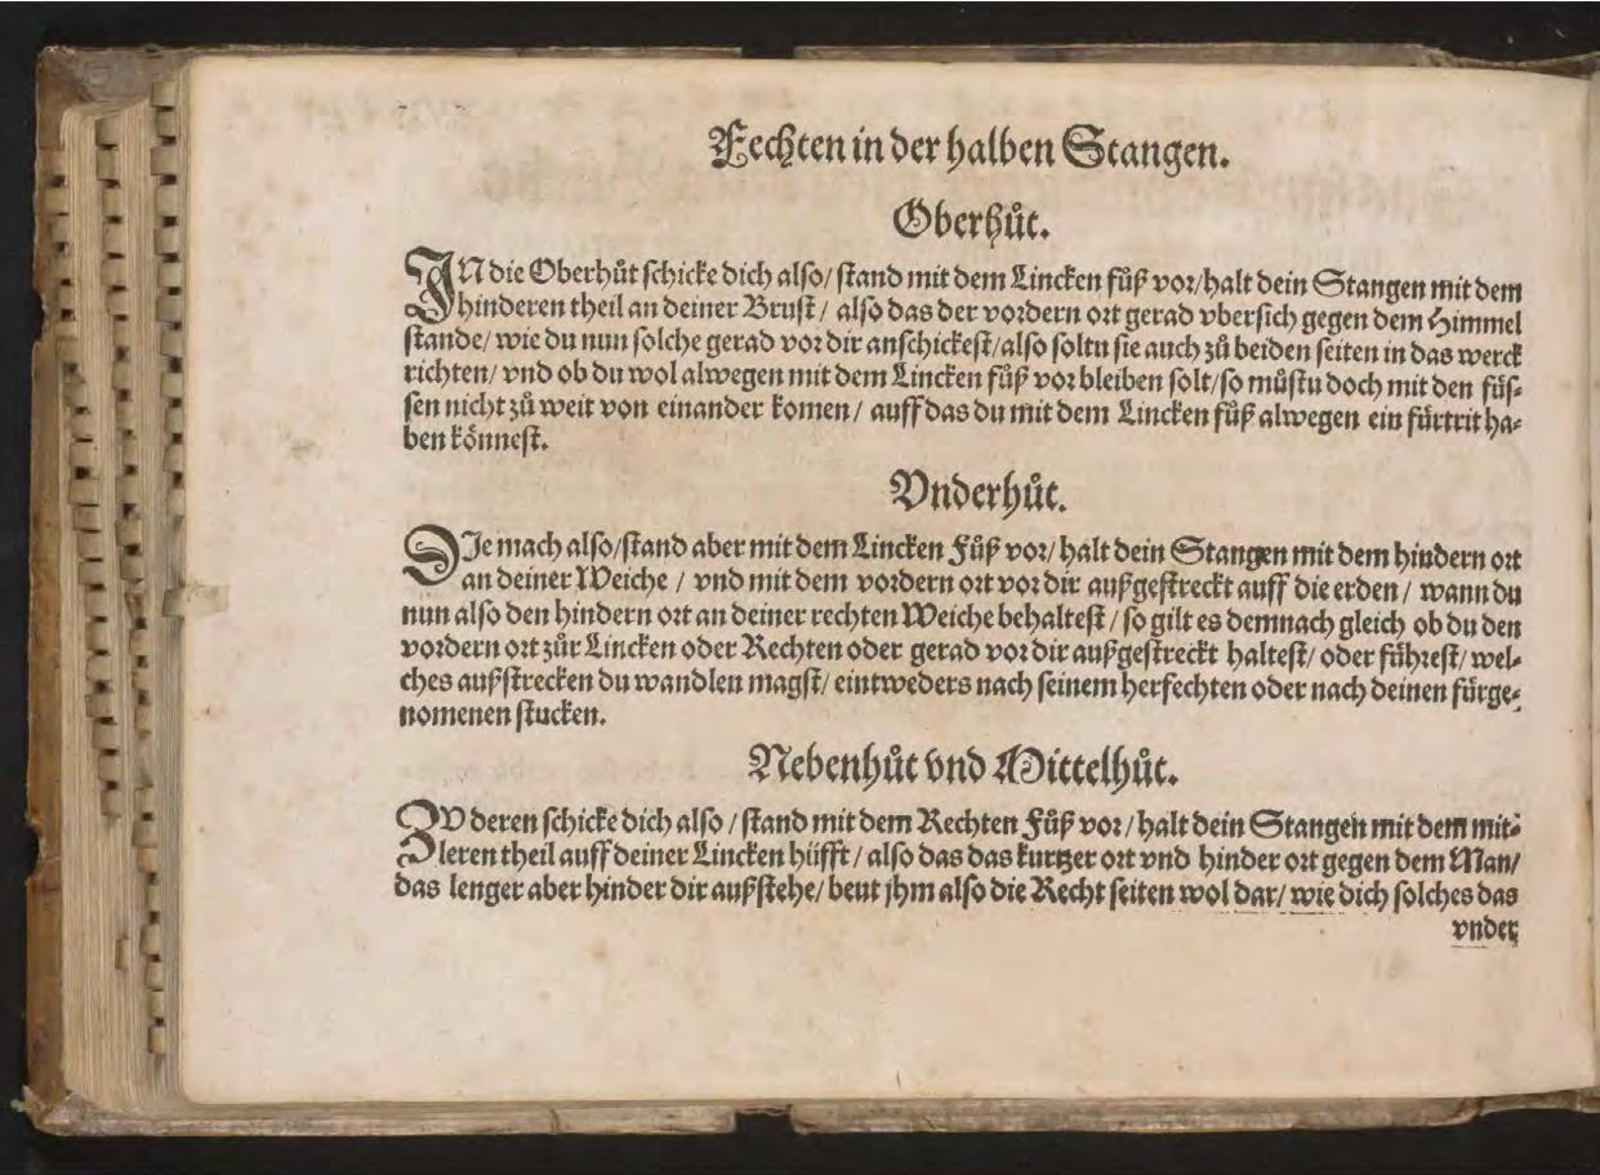 Fechten in der halben Stangen.
Oberhůt.
IN die Oberhůt schicke dich also/ stand mit dem Lincken fůß vor/ halt dein Stangen mit dem
hinderen theil an deiner Brust/ also das der vordern ort gerad vbersich gegen dem Himmel
stande/ wie du nun solche gerad vor dir anschickest/ also soltu sie auch zů beiden seiten in das werck
richten/ vnd ob du wol alwegen mit dem Lincken fůß vor bleiben solt/ so můstu doch mit den füs⸗
sen nicht zů weit von einander komen/ auff das du mit dem Lincken fůß alwegen ein fürtrit ha⸗
ben könnest.
Vnderhůt.
DIe mach also/ stand aber mit dem Lincken Fůß vor/ halt dein Stangen mit dem hindern ort
an deiner Weiche / vnd mit dem vordern ort vor dir außgestreckt auff die erden / wann du
nun also den hindern ort an deiner rechten Weiche behaltest / so gilt es demnach gleich ob du den
vordern ort zůr Lincken oder Rechten oder gerad vor dir außgestreckt haltest/ oder führest/ wel⸗
ches außstrecken du wandlen magst/ eintweders nach seinem herfechten oder nach deinen fürge⸗
nomenen stucken.
Nebenhůt vnd Mittelhůt.
ZV deren schicke dich also / stand mit dem Rechten Fůß vor / halt dein Stangen mit dem mit⸗
leren theil auff deiner Lincken hüfft / also das das kurtzer ort vnd hinder ort gegen dem Man/
das lenger aber hinder dir außstehe/ beut jhm also die Recht seiten wol dar/ wie dich solches das
vnder